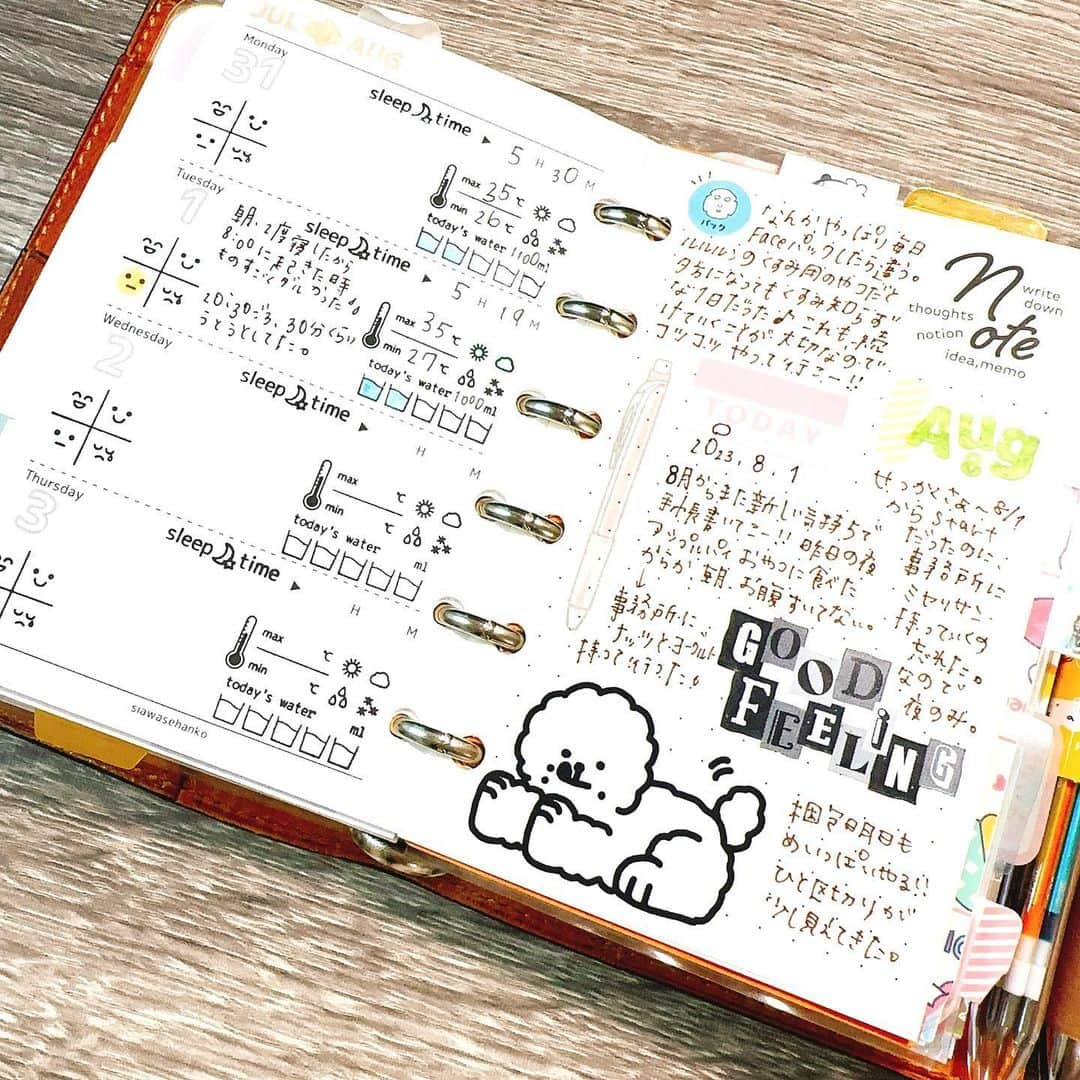 JUL AUG
Monday
31
sleep time
5 H 30 M
max 35 ℃
min 26 ℃
today's water 1100 ml
Tuesday
1
朝、2度寝したから
8:00に起きた時
ものすごくダルかった
20:30ごろ、30分くらい
うとうとしてた。
sleep time
5 H 19 M
max 35 ℃
min 27 ℃
today's water 1000 ml
Wednesday
2
sleep time
H M
max ℃
min ℃
today's water ml
Thursday
3
sleep time
H M
max ℃
min ℃
today's water ml
siawasehanko
パック
なんかやっぱり毎日
Faceパックしたら違う。
ルルルンのくすみ用のやつだと
夕方になってもくすみ知らず
な1日だった♪これも続
けていくことが大切なので
コツコツやって行こー!!
Note
write
down
thoughts
notion
idea,memo
TODAY
2023.8.1
8月からまた新しい気持ちで
手帳書いてこー!! 昨日の夜
アップルパイおやつに食べた
からか、朝、お腹すいてない。
↓
事務所に
ナッツとヨーグルト
持って行った。
Aug
8
せっかくさぁ〜8/1
からStart
だったのに、
事務所に
ミヤリサン
持っていくの
忘れた。
なので
夜のみ。
GOOD
FEELiNG
明日も
めいっぱいやる!!
ひと区切りが
少し見えてきた。